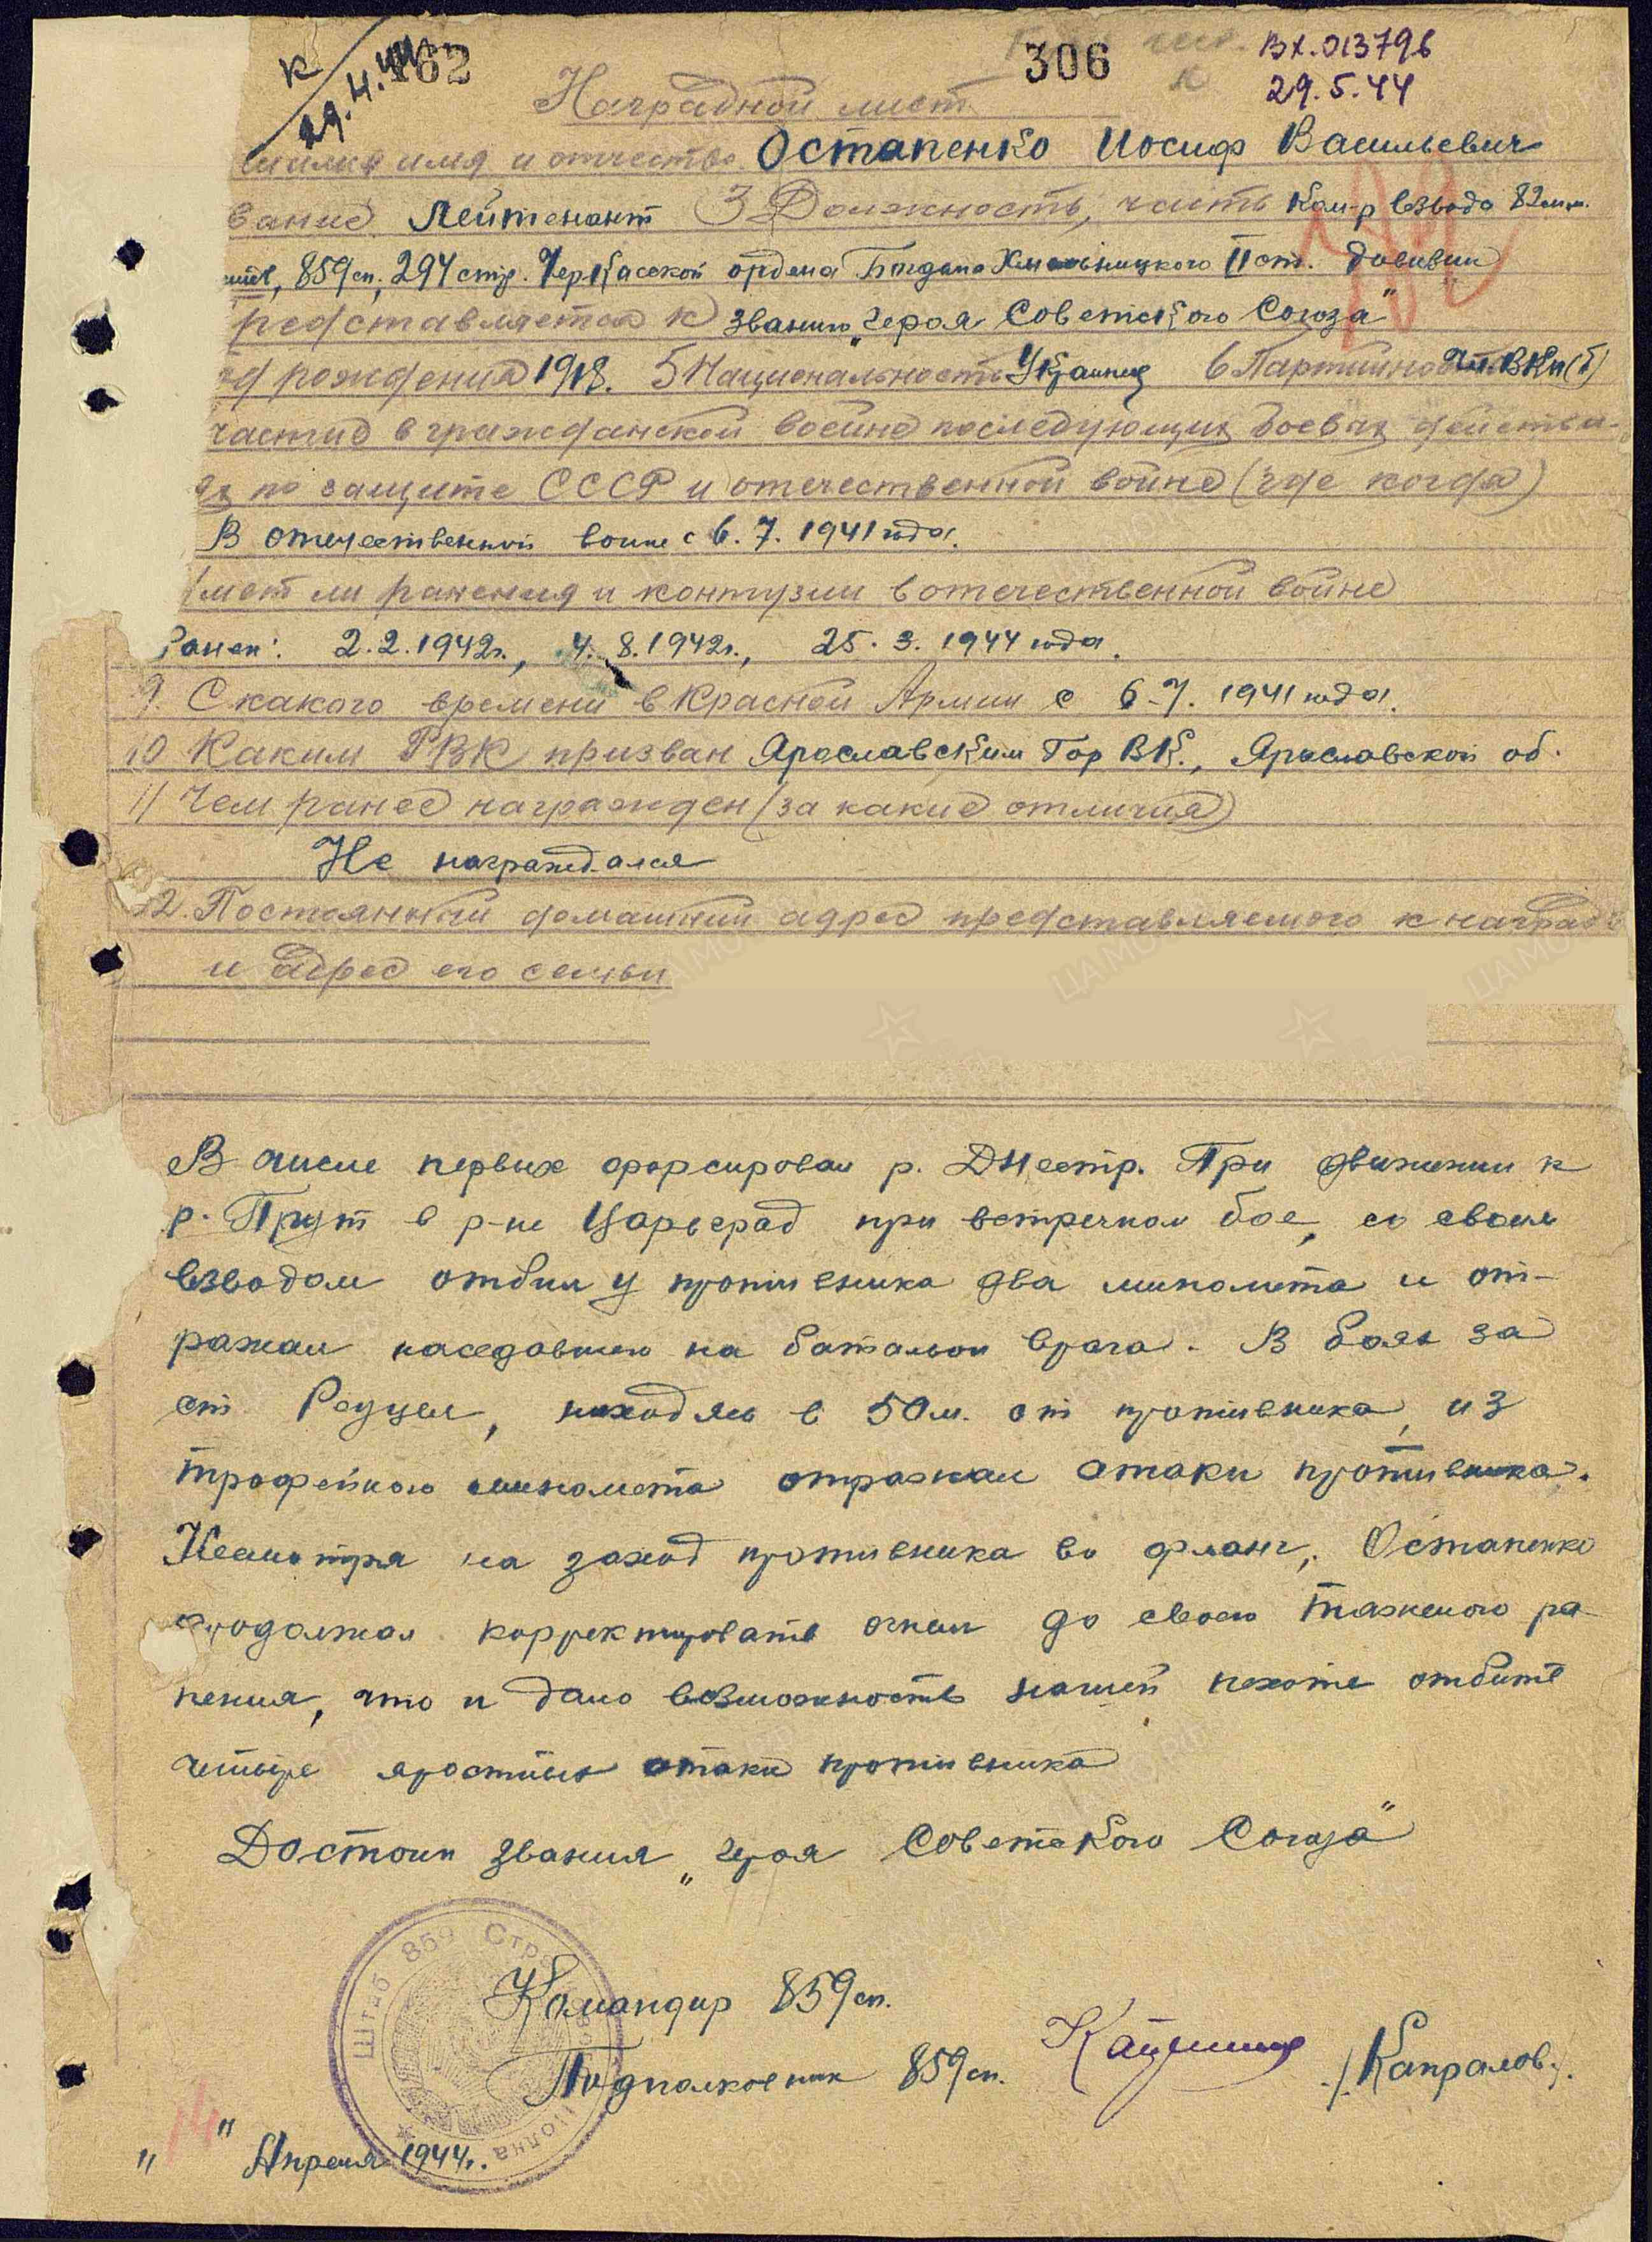 К
29.4.44
162
306
Вх.013796
29.5.44
Наградной лист
милия имя и отчество Остапенко Иосиф Васильевич
вание Лейтенант 3 Должность, часть Ком-р взвода 82мм.
859сп, 294 стр. Черкасской ордена Богдана Хмельницкого II ст. дивизии
редставляется к званию „Героя Советского Союза"
од рождения 1918. 5 Национальность Украинец 6 Партийность чл. ВКП(б)
частие в гражданской войне последующих боевых действи-
ях по защите СССР и отечественной войне (где когда)
В отечественной войне с 6.7.1941 года.
меет ли ранения и контузии в отечественной войне
Ранен: 2.2.1942г., 4.8.1942г., 25.3.1944 года.
9. С какого времени в Красной Армии с 6.7.1941 года.
10 Каким РВК призван Ярославским Гор ВК., Ярославской об.
11 Чем ранее награжден (за какие отличия)
Не награждался
12. Постоянный домашний адрес представляемого к награде
и адрес его семьи
В числе первых форсировал р. Днестр. При движении к
р. Прут в р-не Царьград при встречном бое, со своим
взводом отбил у противника два миномета и от-
ражал наседавшего на батальон врага. В боях за
ст. Редуцел, находясь в 50 м. от противника, из
трофейного миномета отражал атаки противника.
Несмотря на заход противника во фланг, Остапенко
продолжал корректировать огнем до своего тяжелого ра-
нения, что и дало возможность нашей пехоте отбить
четыре яростных атаки противника
Достоин звания „Героя Советского Союза"
Штаб 859 Стр
Командир 859сп.
Подполковник 859сп. /Капралов/.
„14" Апреля 1944г.